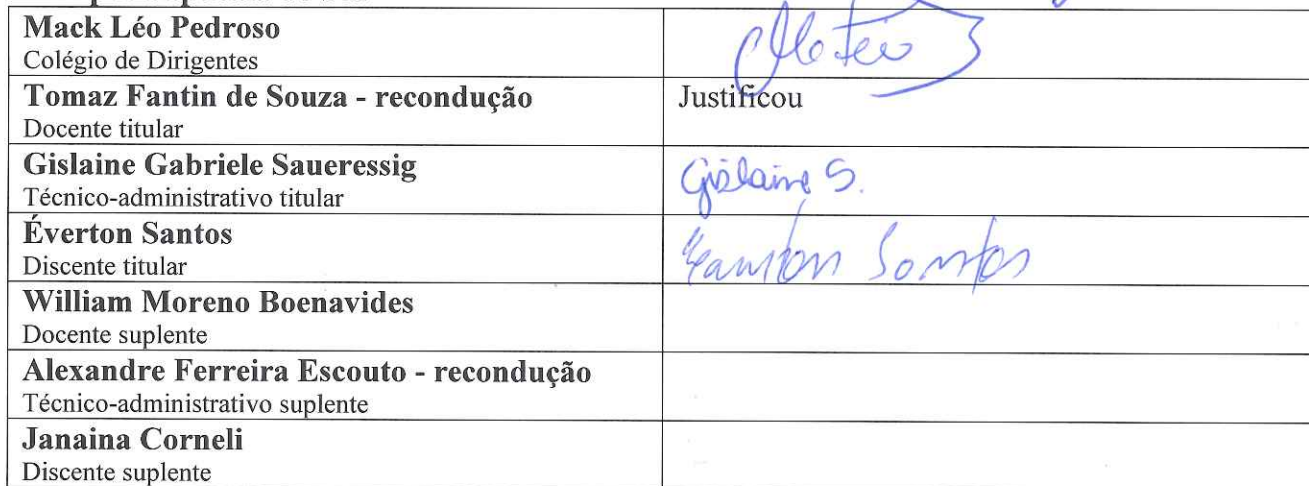 Mack Léo Pedroso
Colégio de Dirigentes
Tomaz Fantin de Souza - recondução
Justificou
Docente titular
Gislaine Gabriele Saueressig
Gislaine S.
Técnico-administrativo titular
Éverton Santos
Santos
Discente titular
William Moreno Boenavides
Docente suplente
Alexandre Ferreira Escouto - recondução
Técnico-administrativo suplente
Janaina Corneli
Discente suplente